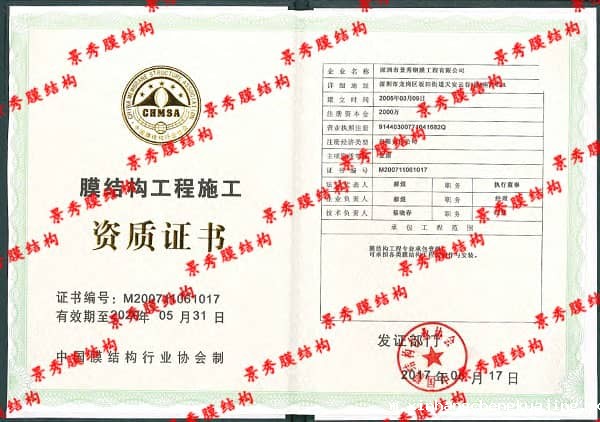 CHINA MEMBRANE STRUCTURE ASSOCIATION
CHMSA
膜结构工程施工
资质证书
证书编号：M200711061017
有效期至2020年 05 月 31 日
中国膜结构行业协会制
企业名称 深圳市景秀钢膜工程有限公司
详细地址 深圳市龙岗区坂田街道天安云谷
建立时间 2005年03月09日
注册资本金 2000万
营业执照注册
注册经济类型 有限责任公司
主项资质等级
证书编号 M200711061017
职务 执行董事
企业负责人 职务 经理
技术负责人 职务
承包工程范围
膜结构工程专业承包壹级
可承担各类膜结构工程制作与安装。
发证部门：
2017 年 月 17 日
景秀膜结构
景秀膜结构
景秀膜结构
景秀膜结构
景秀膜结构
景秀膜结构
景秀膜结构
景秀膜结构
景秀膜结构
景秀膜结构
景秀膜结构
景秀膜结构